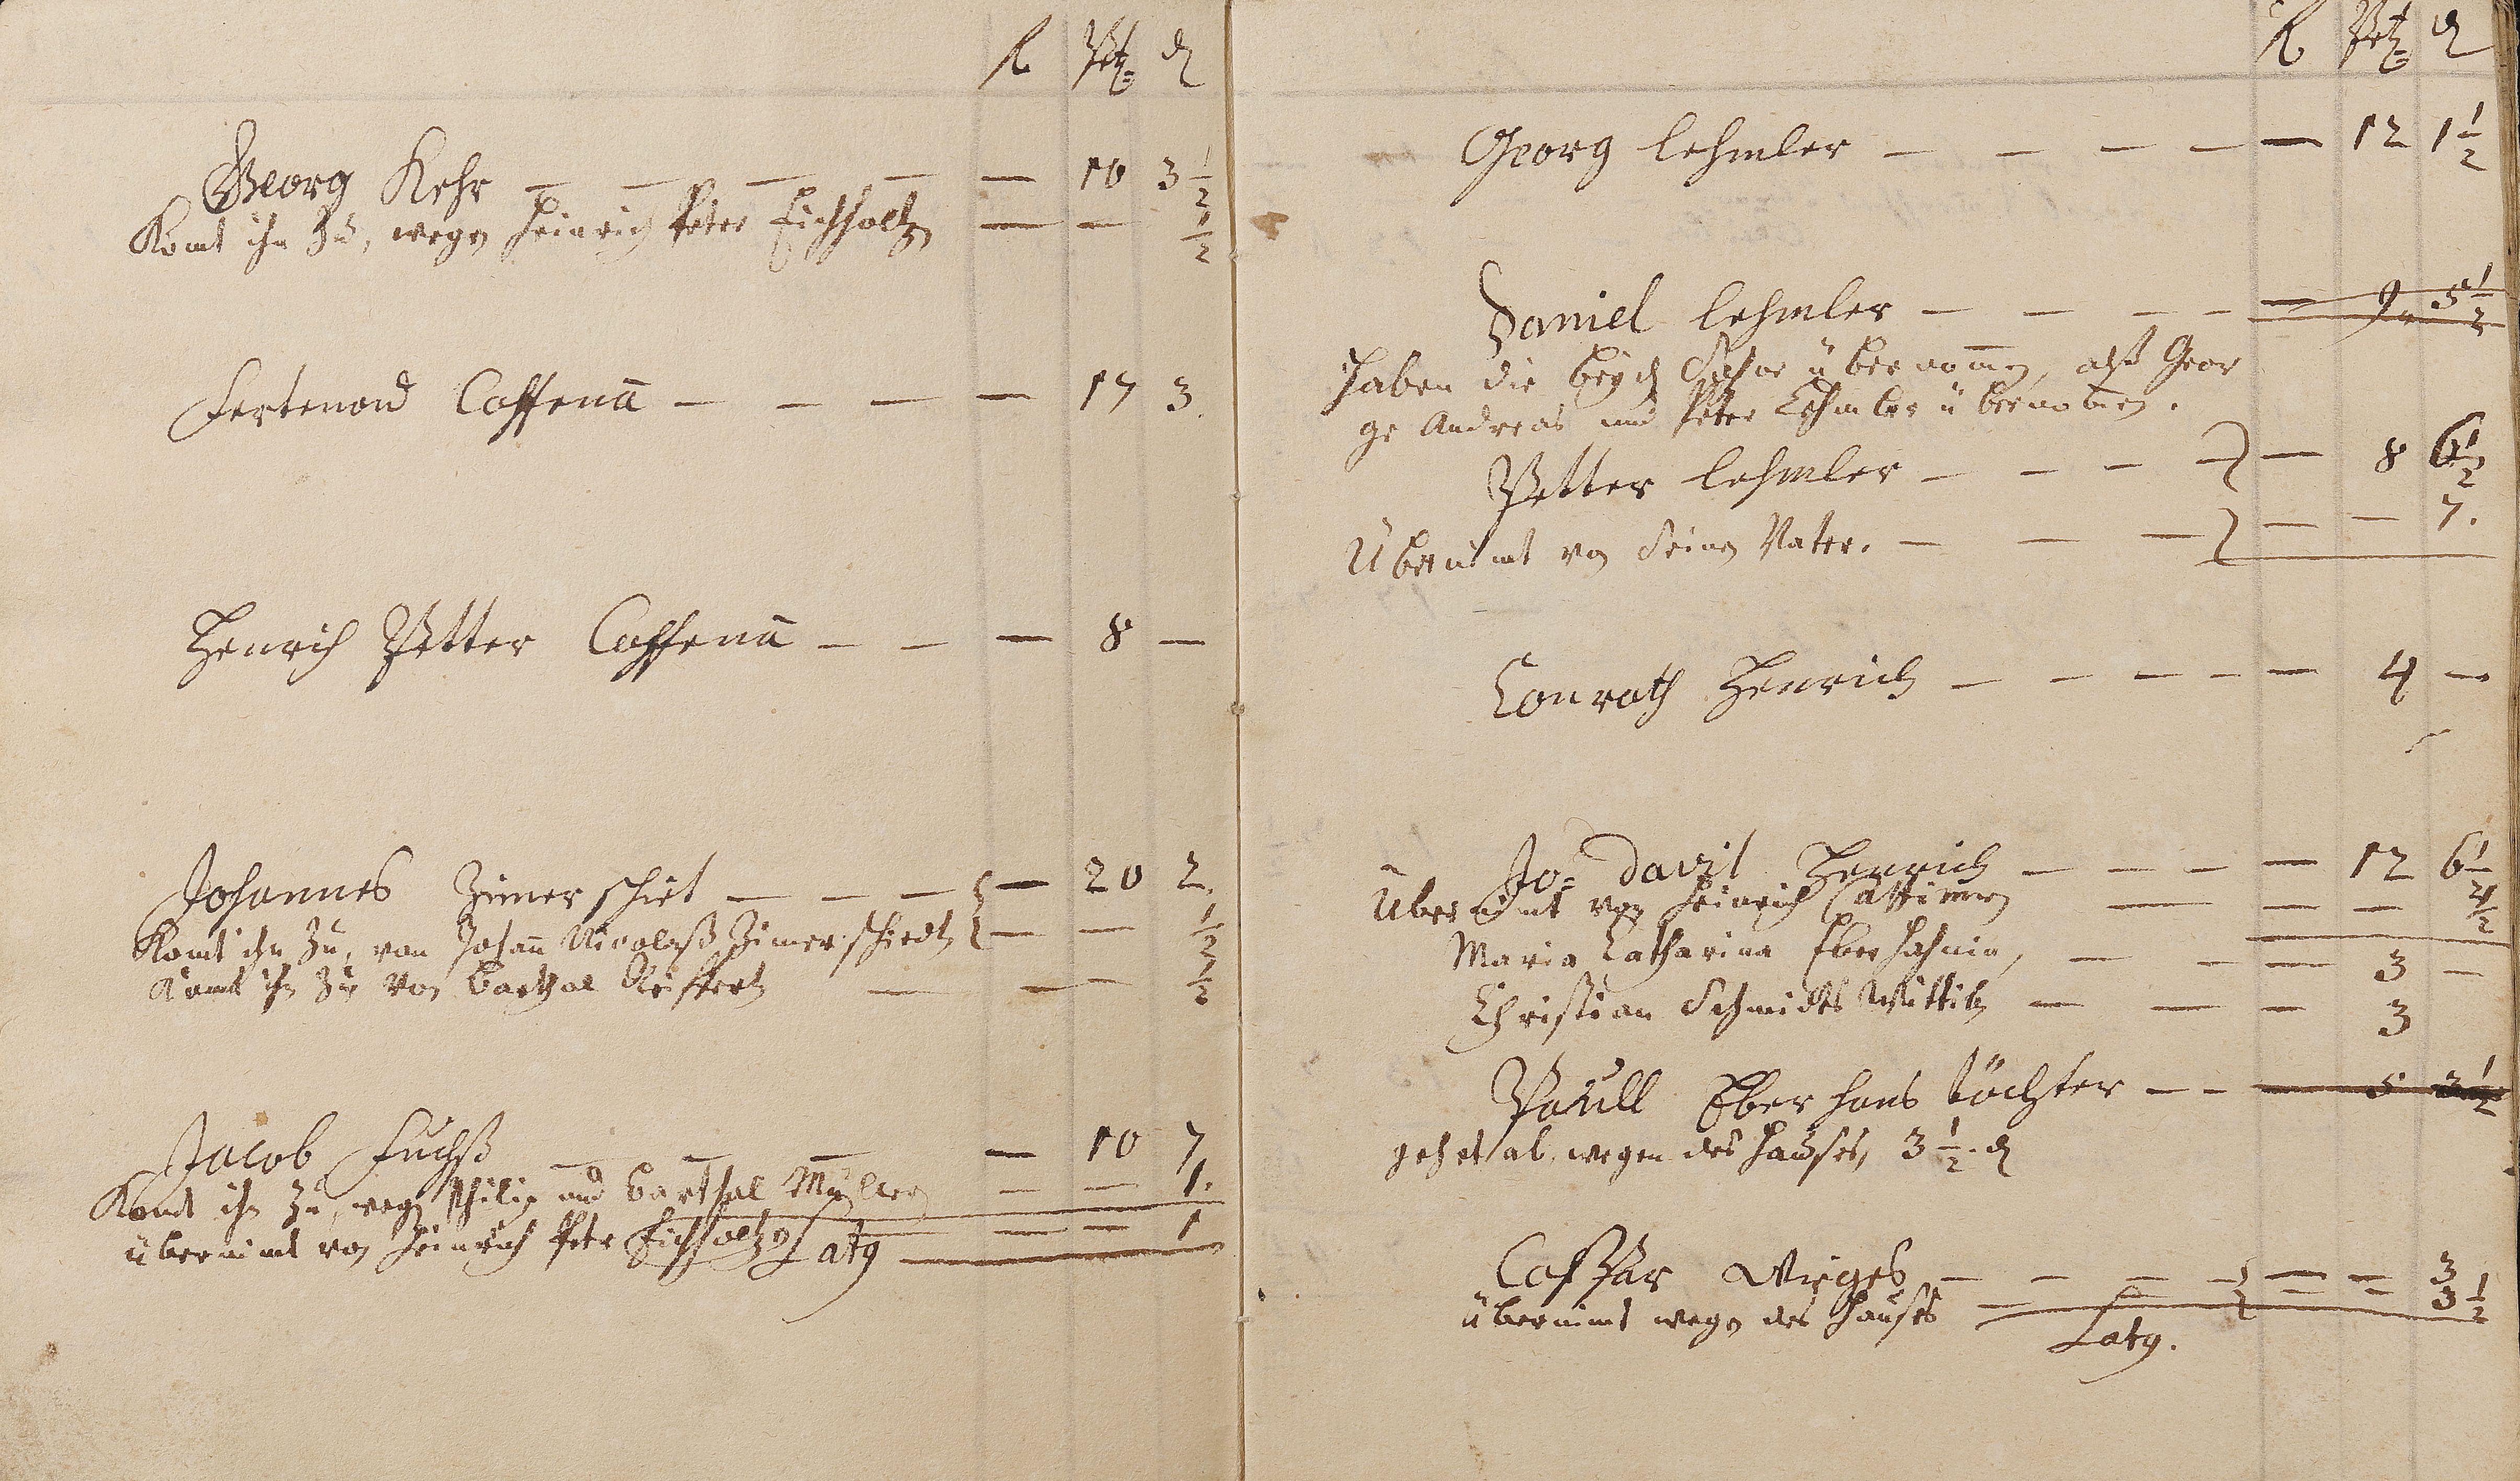 fl Ptz d
Georg Kehr — — — — — 10 3 1/2
Komt ihm Zu, wegen Heinrich Peter Eichholtz — — 1/2
Fertenand Caffenā — — — — 17 3.
Henrich Petter Caffenā — — — 8 —
Johannes Zimerschiet — — — — 20 2.
Komt ihm Zu, von Johann Nicolaß Zimerschiedt — — 1/2
Komt ihm Zu von Barthol — — — 1/2
Jacob Fuchß — — — — 10 7
Komt ihm Zu, wegen Philip und Barthol Müller — — 1.
übernimt von Heinrich Peter Eichholtz — — 1
Latg
fl Ptz d
Georg Lehmler — — — — — 12 1 1/2
Daniel Lehmler — — — — — 9 5 1/2
haben die beyde Söhne übernommen, alß Geor
ge Andreas und Peter Lehmler übernomen.
Petter Lehmler — — — — — 8 6 1/2
Übernimt von Seinen Vater. — — — — — 7.
Conrath Henrich — — — — — 4 —
Jo= Davit Henrich — — — — 12 6 1/2
Übernimt von Heinrich — — — 1/2
Maria Catharina Eberhahnin, — — — 3 —
Christian Schmidts Wittib — — — 3
Paull Eberhans töchter — — — 5
gehet ab wegen des Hauses, 3 1/2 d
Casspar Wirges — — — — — — 3
übernimt wegen des Hauses — — — 3 1/2
Latg.